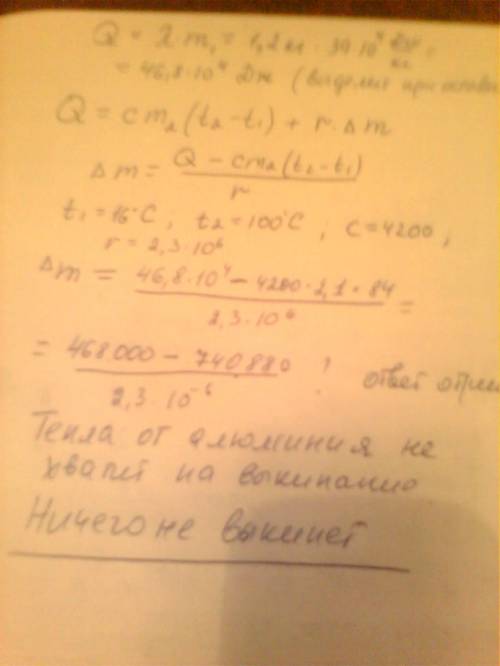 Q = λ m₁ = 1,2 кг · 39·10⁴ Дж/кг =
= 46,8·10⁴ Дж (выделит при
Q = cm₂(t₂−t₁) + r·Δm
Δm = (Q − cm₂(t₂−t₁))/r
t₁ = 16°C ; t₂ = 100°C ; c = 4200 ;
r = 2,3·10⁶
Δm = (46,8·10⁴ − 4200·2,1·84)/(2,3·10⁶) =
= (468000 − 740880)/(2,3·10⁻⁶) ! ответ
Тепла от алюминия не
хватит на выкипание
Ничего не выкипет